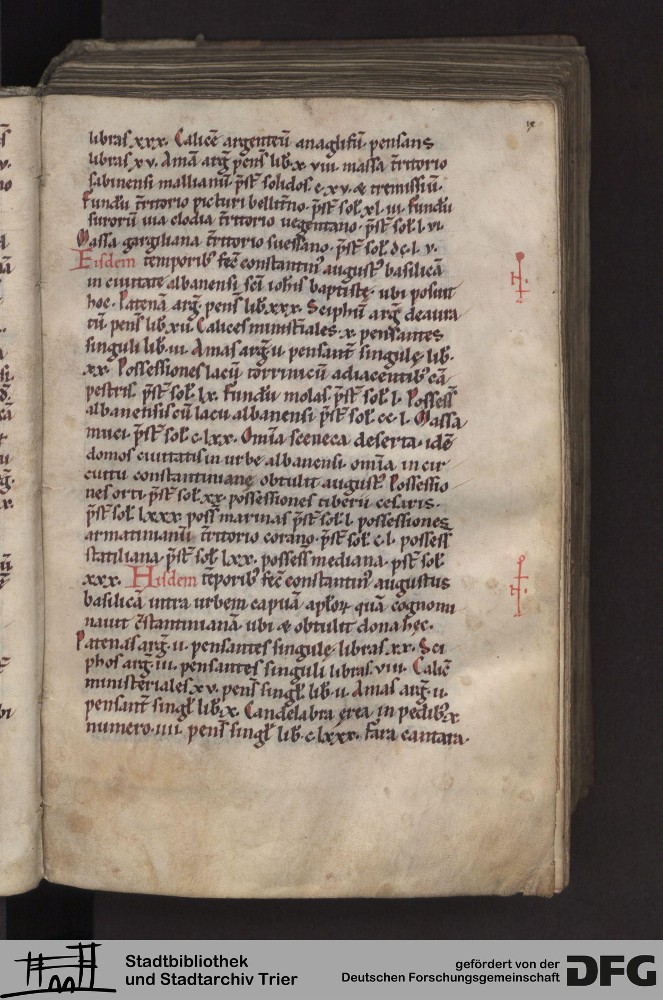 libras xxx. Calicē argenteū anaglifū. pensans
libras xv. Amā arḡ pens̄ lib̄. x. viii. massa t̄ritorio
sabinensi mallianū. p̄st̄ solidos. c. xv. & tremissiū.
Fundū t̄ritorio picturi bellit̄no. p̄st̄ sol̄. xl. iii. Fundū
surorū uia clodia t̄ritorio uegentano. p̄st̄ sol̄. l. vi.
Massa gargiliana t̄ritorio suessano. p̄st̄ sol̄. dc. l. v.
Eisdem temporib᷒ fec̄ constantin᷒ august᷒ basilicā
in ciuitate albanensi. sc̄i ioh̄is baptistę. ubi posuit
hoc. Patenā arḡ. pens̄ lib̄. xxx. Sciphū arḡ deaura
tū pens̄ lib. xii. Calices minist̄iales. x. pensantes
singuli lib. iii. Amas arḡ ii. pensant̄ singulę lib.
xx. Possessiones lacū torrinicū adiacentib᷒ cā
pestris. p̄st̄ sol̄. lx. Fundū molas. p̄st̄ sol̄. l. Possess̄
albanensis cū lacu albanensi. p̄st̄ sol̄. cc. l. Massa
muci. p̄st̄ sol̄. c. lxx. Om̄ia sceneca deserta. idē
domos ciuitatis in urbe albanensi. om̄ia in cir
cuitu constantinianę obtulit august᷒. Possessio
nes orti p̄st̄ sol̄. xx. possessiones tiberii cesaris.
p̄st̄ sol̄. lxxx. poss̄ marinas p̄st̄ sol̄. l. possessiones
armatimanū. t̄ritorio corano. p̄st̄ sol̄. c. l. possess̄
statiliana. p̄st̄ sol̄. lxx. possess̄ mediana. p̄st̄ sol̄
xxx. Hisdem tēporib᷒ fec̄ constantin᷒ augustus
basilicā intra urbem capuā. ap̄loꝝ quā cognomi
nauit cōstantinianā. ubi & obtulit dona hęc.
Patenas arḡ. ii. pensantes singulę. libras. xx. Sci
phos arḡ. iii. pensantes singuli libras. viii. Calic̄
ministeriales xv. pens̄ singl̄. lib̄. ii. Amas arḡ. ii.
pensant̄ singl̄ lib̄. x. Candelabra ęrea in pedib᷒. x.
numero. iiii. pens̄ singl̄ lib̄. c. lxxx. Fara cantara.
Stadtbibliothek
und Stadtarchiv Trier
gefördert von der
Deutschen Forschungsgemeinschaft
DFG